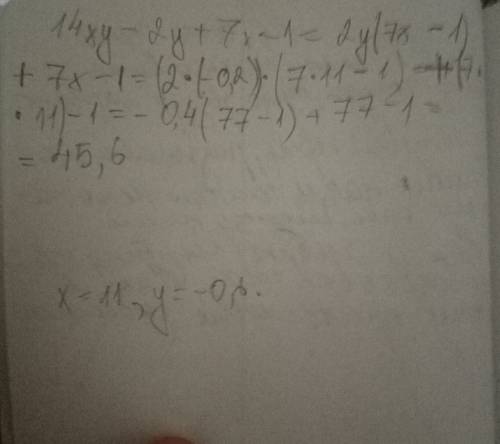 14xy - 2y + 7x - 1 = 2y(7x - 1)
+ 7x - 1 = (2·(-0,2))·(7·11 - 1) + (7·
·11) - 1 = - 0,4(77 - 1) + 77 - 1 =
= 45,6
x = 11, y = -0,